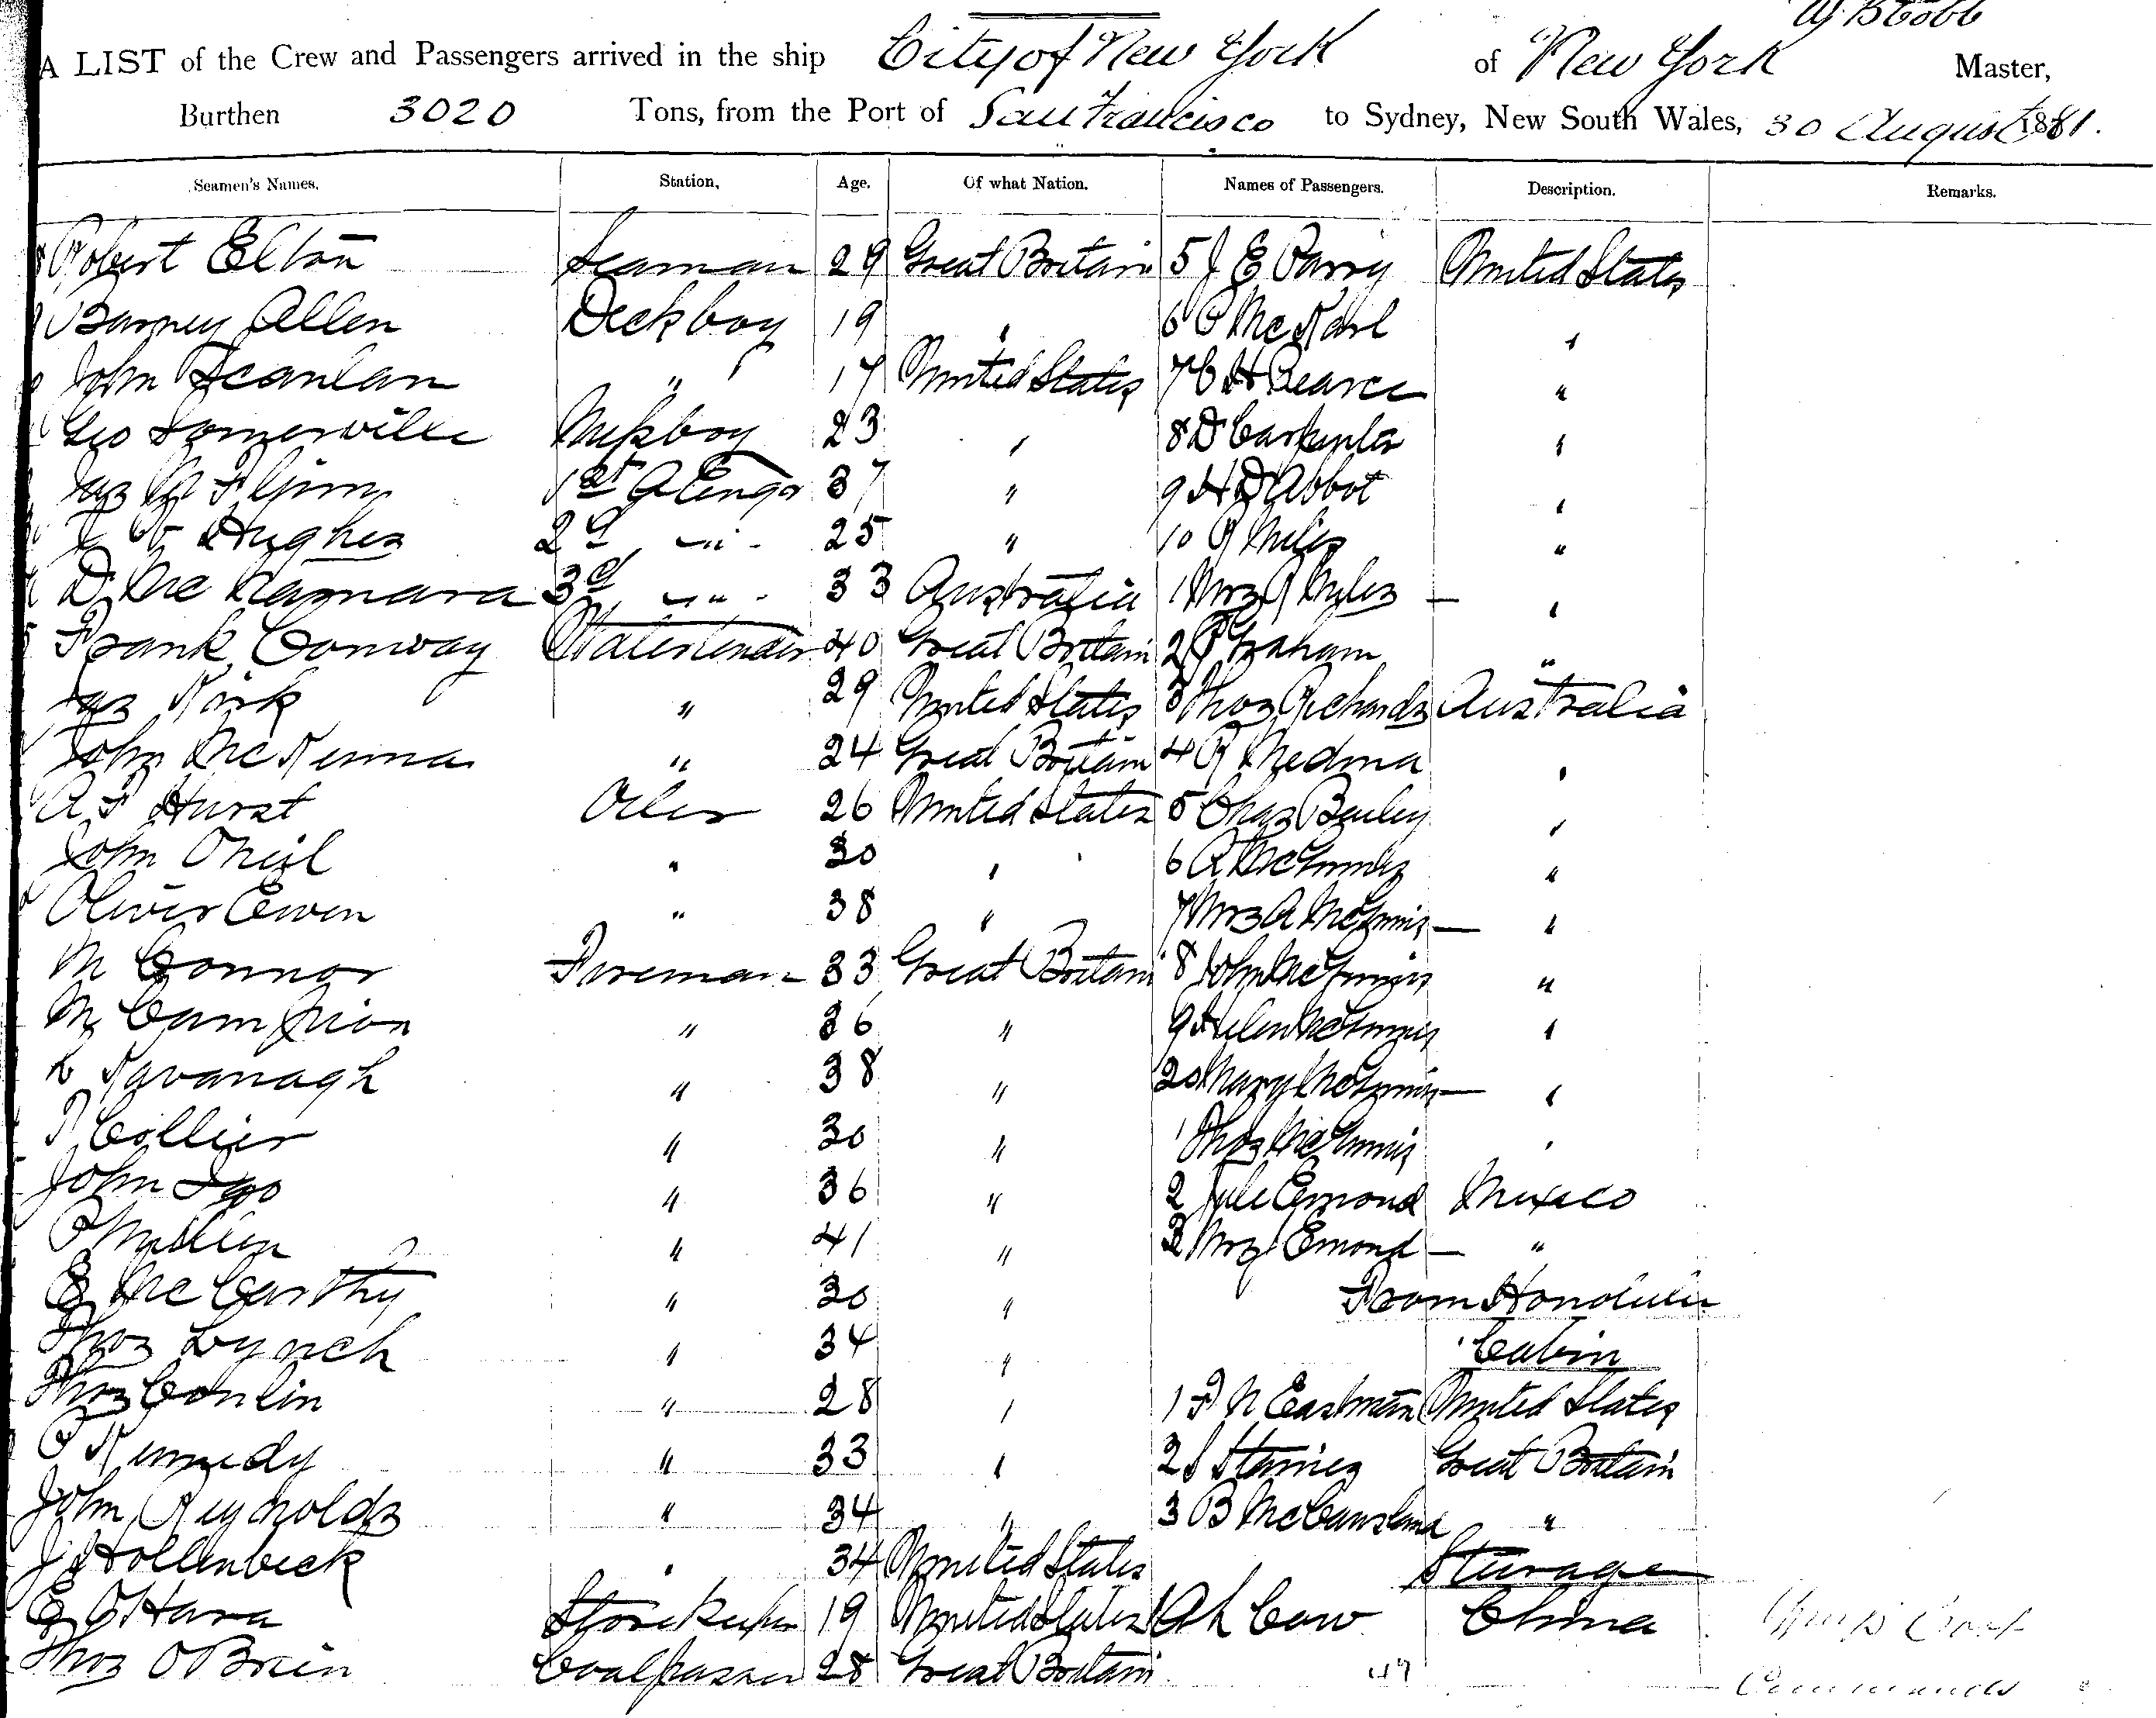 W B Cobb
A LIST of the Crew and Passengers arrived in the ship City of New York of New York Master,
Burthen 3020 Tons, from the Port of San Francisco to Sydney, New South Wales, 30 August 1881.
Seamen's Names. Station, Age. Of what Nation. Names of Passengers. Description. Remarks.
Robert Elton Seaman 29 Great Britain 5 J E Parry United States
Barney Allen Deckboy 19 " 6 P McKarl "
John Scanlan " 17 United States 7 C H Pearce "
Geo Somerville Messboy 23 " 8 D Carpenter "
Jas Flynn 1st A Engr 37 " 9 H D Abbot "
Hughes 2d " 25 " 10 G Miles "
D McNamara 3d " 33 Australia 1 Mrs G Miles — "
Frank Conway Watertender 40 Great Britain 2 Graham "
Jas Kirk " 29 United States 3 Thos Richards Australia
John McKenna " 24 Great Britain 4 R Medina "
A F Hurst Oiler 26 United States 5 Chas Bailey "
John ONeil " 30 " 6 A McGinnis "
Oliver Ewen " 38 " 7 Mrs A McGinnis — "
M Connor Fireman 33 Great Britain 8 John McGinnis "
M Campion " 36 " 9 Helen McGinnis "
L Kavanagh " 38 " 20 Mary McGinnis — "
P Collier " 30 " 1 Thos McGinnis "
John Igo " 36 " 2 Jule Emond Mexico
P " 41 " 3 Mrs Emond — "
E McCarthy " 30 " From Honolulu
Thos Lynch " 34 " Cabin
Thos Conlin " 28 " 1 F N Eastman United States
P Kennedy " 33 " 2 J Staines Great Britain
John Reynolds " 34 " 3 B McCausland "
J Hollenbeck " 34 United States Steerage
E O'Hara Storekeeper 19 United States 1 Ah Cow China
Thos O'Brien Coalpasser 28 Great Britain 47